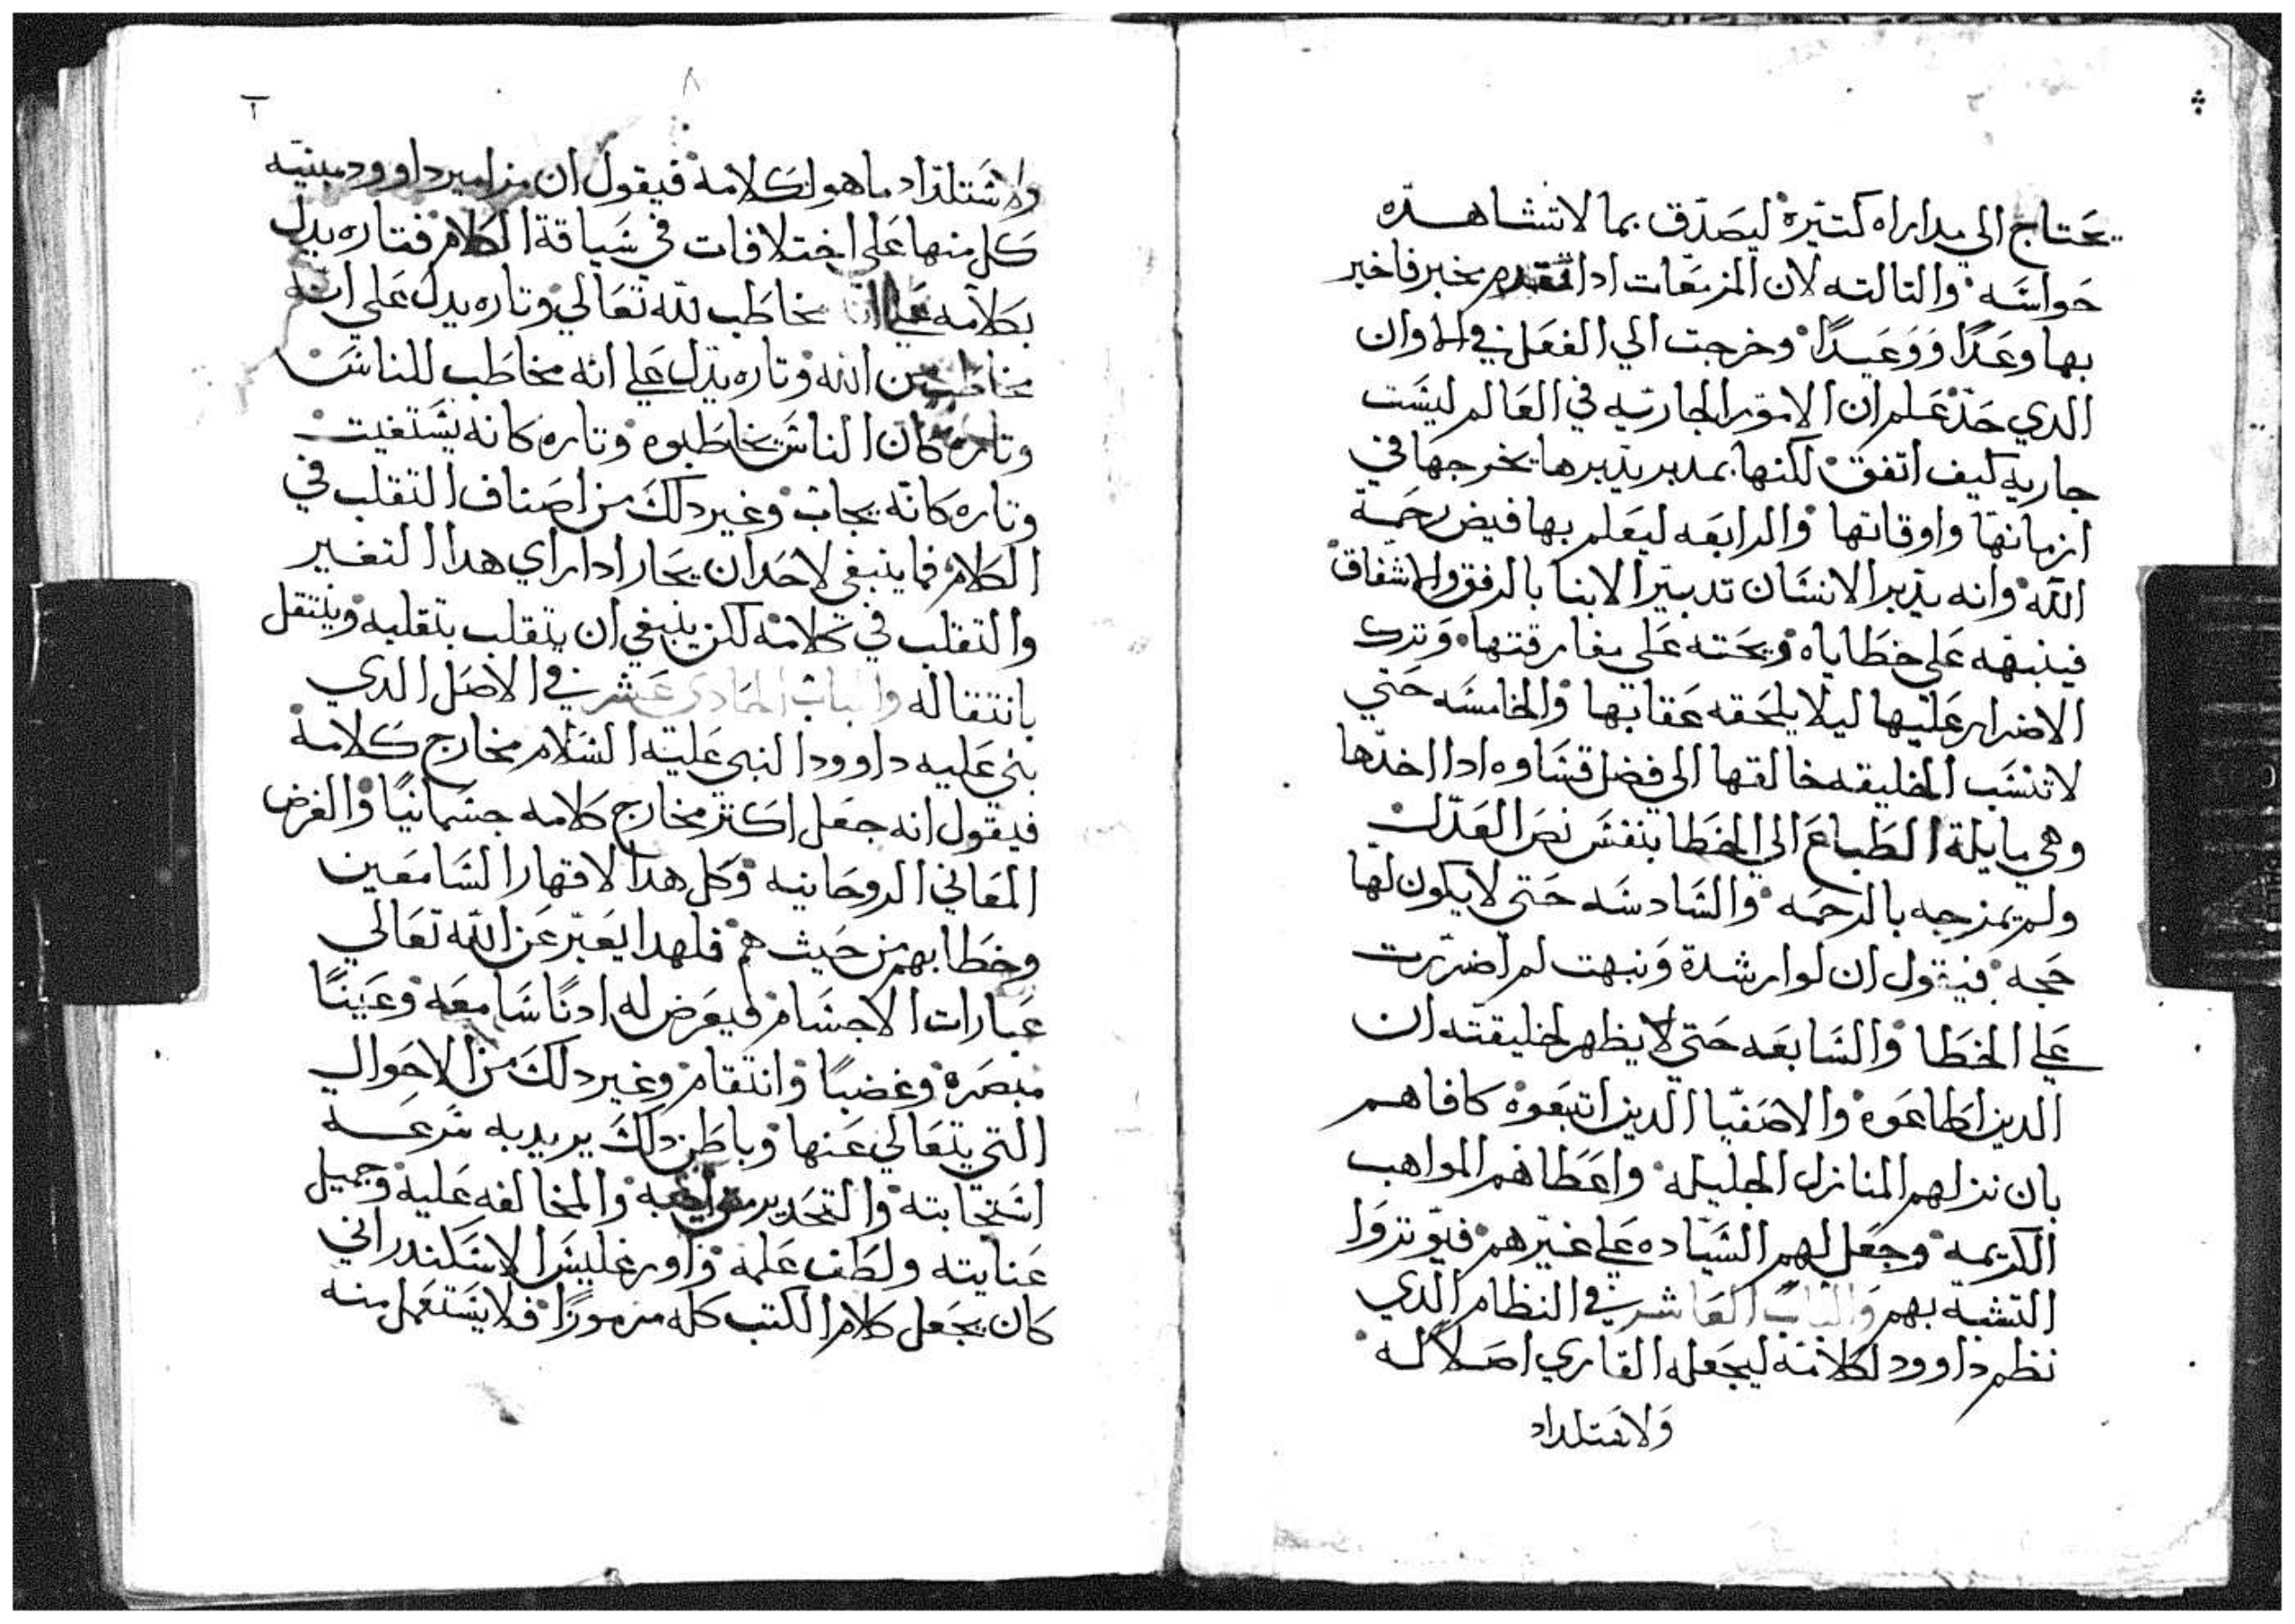 يحتاج الي مداراه كتيره ليصدق بما لا تشاهده
حواسه والتالته لان المزمعات ادا تقدم مخبر فاخبر
بها وعدًا ووعيدًا وخرجت الي الفعل في الاوان
الدي حد علم ان الامور الجاريه في العالم ليست
جاريه كيف اتفق لكنها بمدبر يدبرها يخرجها في
ازمانها واوقاتها والرابعه ليعلم بها فيض رحمة
الله وانه يدبر الانسان تدبير الابنا بالرفق والاشفاق
فينبهه على خطاياه ويحته على مفارقتها وترك
الاضرار عليها ليلا يلحقه عقابها والخامسه حتي
لا تنسب الخليقه خالقها الى فضل قساوه ادا اخدها
وهي مايلة الطباع الي الخطا بنفس نص العدل
ولم يمزجه بالرحمه والسادسه حتى لا يكون لها
حجه فيقول ان لو ارشدة ونبهت لم اضررت
علي الخطا والسابعه حتى لا يظهر لخليقته ان
الدين اطاعوه والاصفيا الدين اتبعوه كافاهم
بان نزلهم المنازل الجليله واعطاهم المواهب
الكريمه وجعل لهم السياده علي غيرهم فيوتروا
التشبه بهم والباب العاشر في النظام الدي
نظم داوود لكلامه ليجعله القاري اصلا له
ولاستلداد
٨
واستلداد ما هو لكلامه فيقول ان مزامير داوود مبنيه
كل منها على اختلافات في سياقة الكلام فتاره يدل
بكلامه علي انه مخاطب لله تعالي وتاره يدل على انه
مخاطب من الله وتاره يدل علي انه مخاطب للناس
وتاره كان الناس يخاطبوه وتاره كانه يستغيت
وتاره كانه يجاب وغير دلك من اصناف التقلب في
الكلام فما ينبغي لاحد ان يحار ادا راي هدا التغير
والتقلب في كلامه لكن ينبغي ان يتقلب بتقلبه وينتقل
بانتقاله والباب الحادي عشر في الاصل الدي
بني عليه داوود النبي عليه السلام مخارج كلامه
فيقول انه جعل اكتر مخارج كلامه جسمانيًا والغرض
المعاني الروحانيه وكل هدا لافهار السامعين
وخطابهم من حيث هم فلهدا يعبر عن الله تعالي
عبارات الاجسام فيعرض له ادنًا سامعه وعينًا
مبصره وغضبًا وانتقام وغير دلك من الاحوال
التي يتعالي عنها وباطن دلك يريد به سرعة
استجابته والتحدير من والمخالفه عليه وجميل
عنايته ولطف علمه واوريغليس الاسكندراني
كان يجعل كلام الكتب كله مرموزًا فلا يستعمل منه